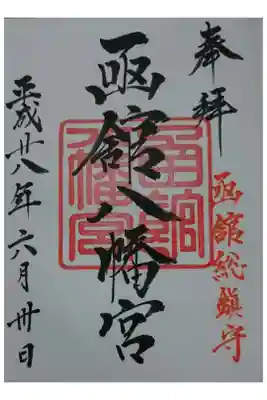 奉拝
函館総鎮守
凾館八幡宮
函館八幡宮
平成廿八年六月卅日